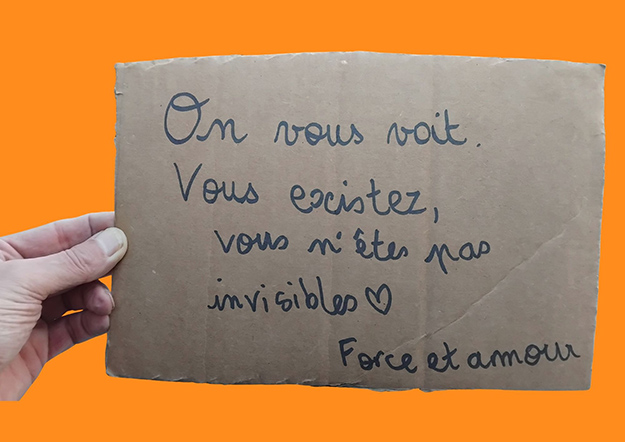 On vous voit.
Vous existez,
vous n'êtes pas
invisibles♡
Force et amour